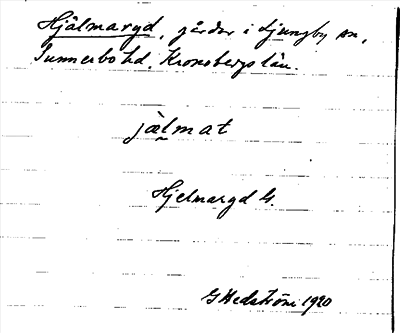 Hjälmaryd, gårdar i Ljungby sn,
Sunnerbo hd, Kronobergs län.
jàlmat
Hjelmaryd 4.
G Hedström 1920